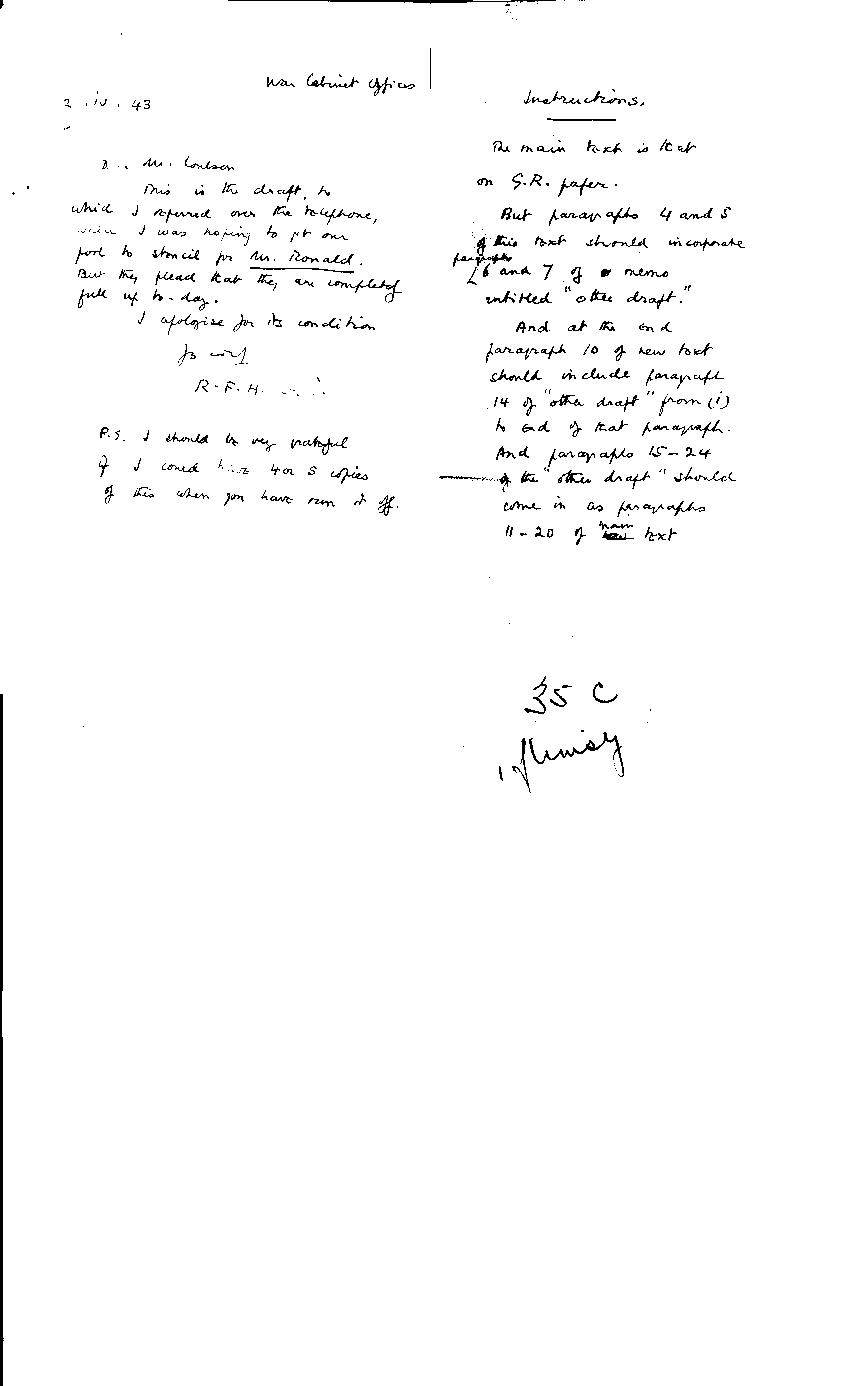 War Cabinet Offices
2 . iv . 43
Mr. Coulson
This is the draft, to
which I referred over the telephone,
when I was hoping to get our
pool to stencil for Mr. Ronald.
But they plead that they are completely
full up to-day.
I apologise for its condition
R. F. H.
P.S. I should be very grateful
if I could have 4 or 5 copies
of this when you have run it off.
Instructions.
The main text is that
on G.R. paper.
But paragraphs 4 and 5
of this text should incorporate
paragraphs
6 and 7 of memo
entitled "other draft."
And at the end
paragraph 10 of new text
should include paragraph
14 of "other draft" from (i)
to end of that paragraph.
And paragraphs 15-24
of the "other draft" should
come in as paragraphs
11-20 of main text
35 C